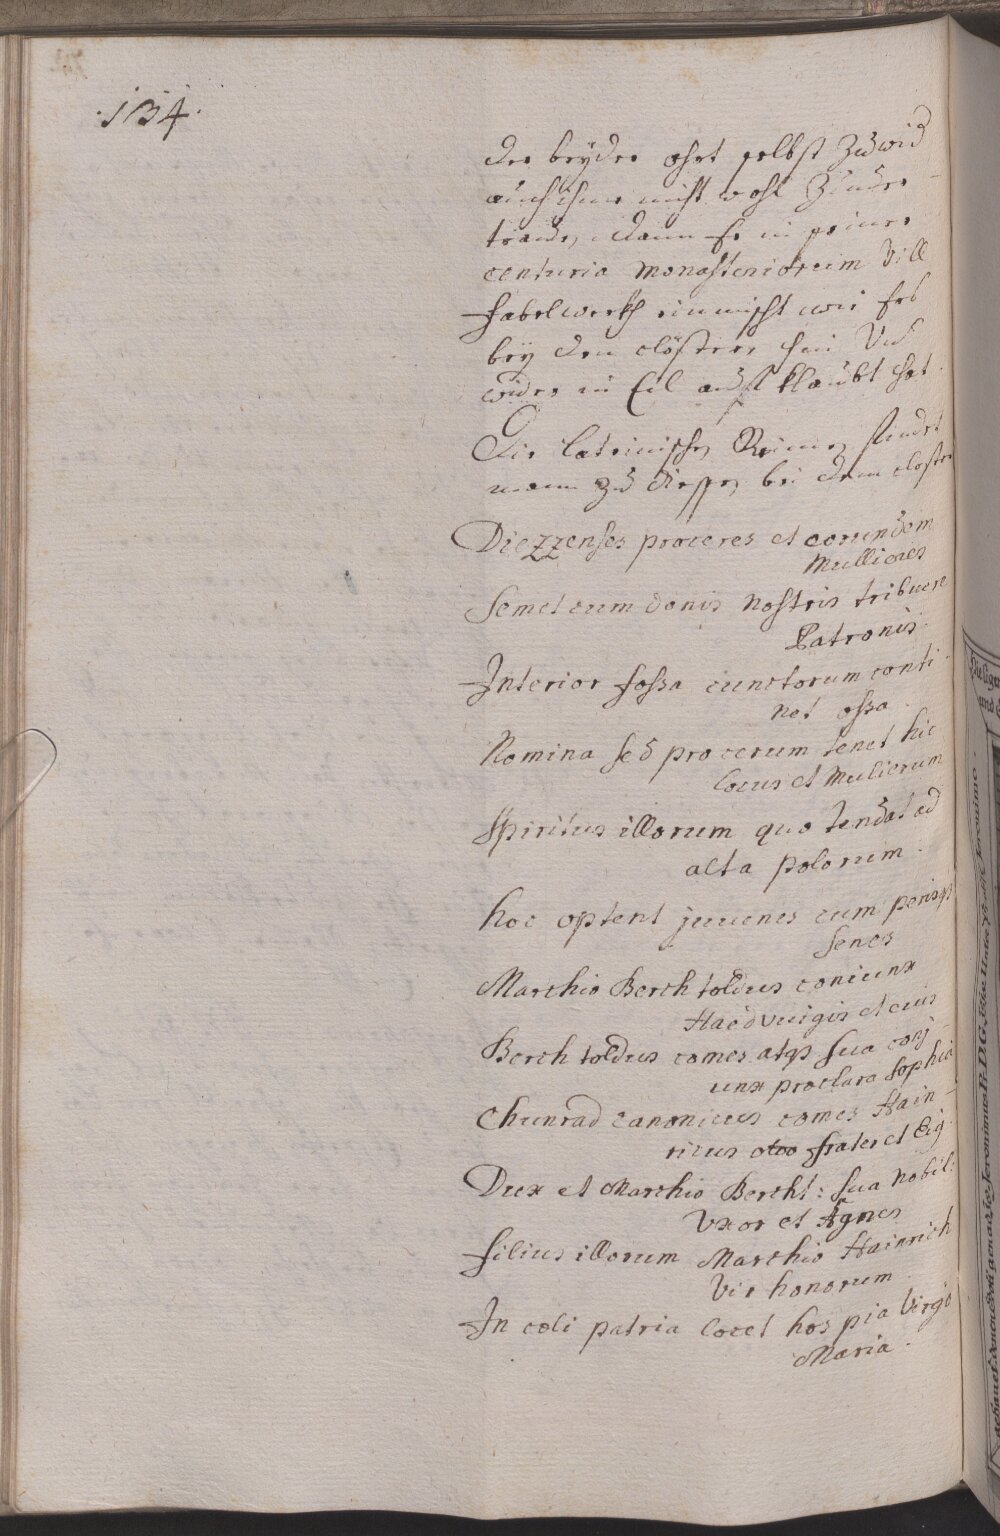 .134.
der beyder ohrt selbst zuwid
auch ihme nicht wohl Zuuer
trauen, dann Er in seiner
centuria monasteriorum Vill
fabelwerkh einmischt wie Ers
bey den clöstern hin Und
wider in Eil auß klaubt hat.
Die lateinischen Reimen findet
mann zu diessen bei dem closter
Diezzenses proceres et eorundem
Mullieres
Semet cum donis nostris tribuere
Patronis.
Interior fossa cunctorum conti
net ossa.
Nomina sed procerum tenet hic
locus et Mulierum
Spiritus illorum quo tendat ad
alta polorum.
hoc optent juuenes cum
senes
Marchio Berchtoldus coniunx
Haedvuigis et eius
Berchtoldus comes atqs sua conj
unx praeclara Sophia
Chunrad canonicus comes Hain-
ricus frater et
Dux et Marchio Bercht: sua nobil:
Vxor et Agnes
filius illorum Marchio Hainrich
Vir honorum.
In coli patria locet hos pia Virgo
Maria.